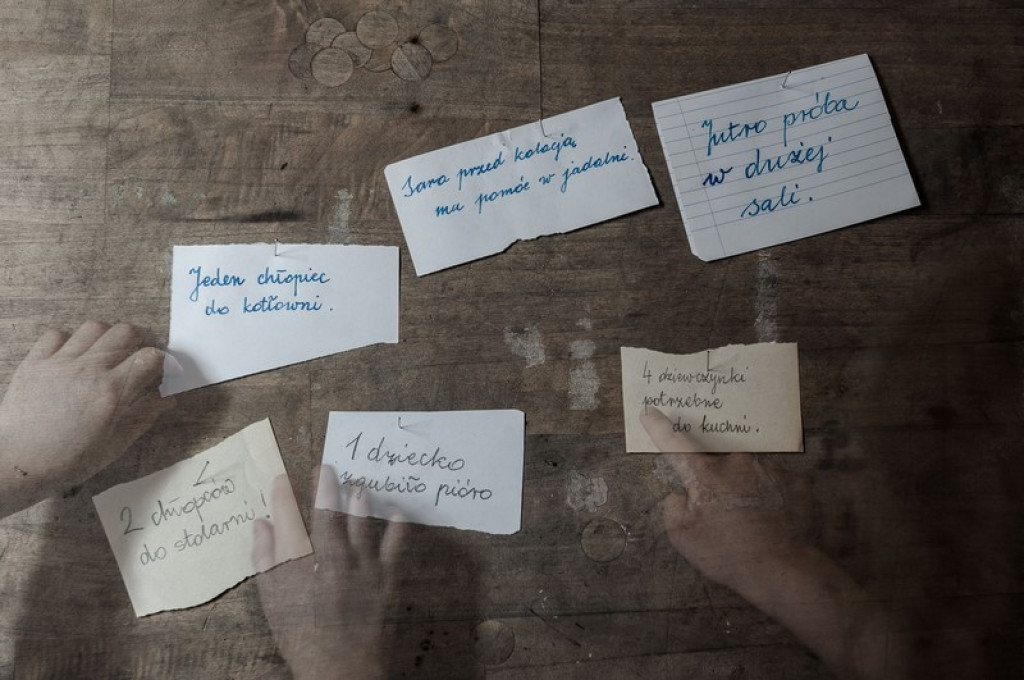 Jutro próba
w dużej
sali.
Sara przed kolacją
ma pomóc w jadalni.
Jeden chłopiec
do kotłowni.
4 dziewczynki
potrzebne
do kuchni.
1 dziecko
zgubiło pióro
2 chłopców
do stolarni!